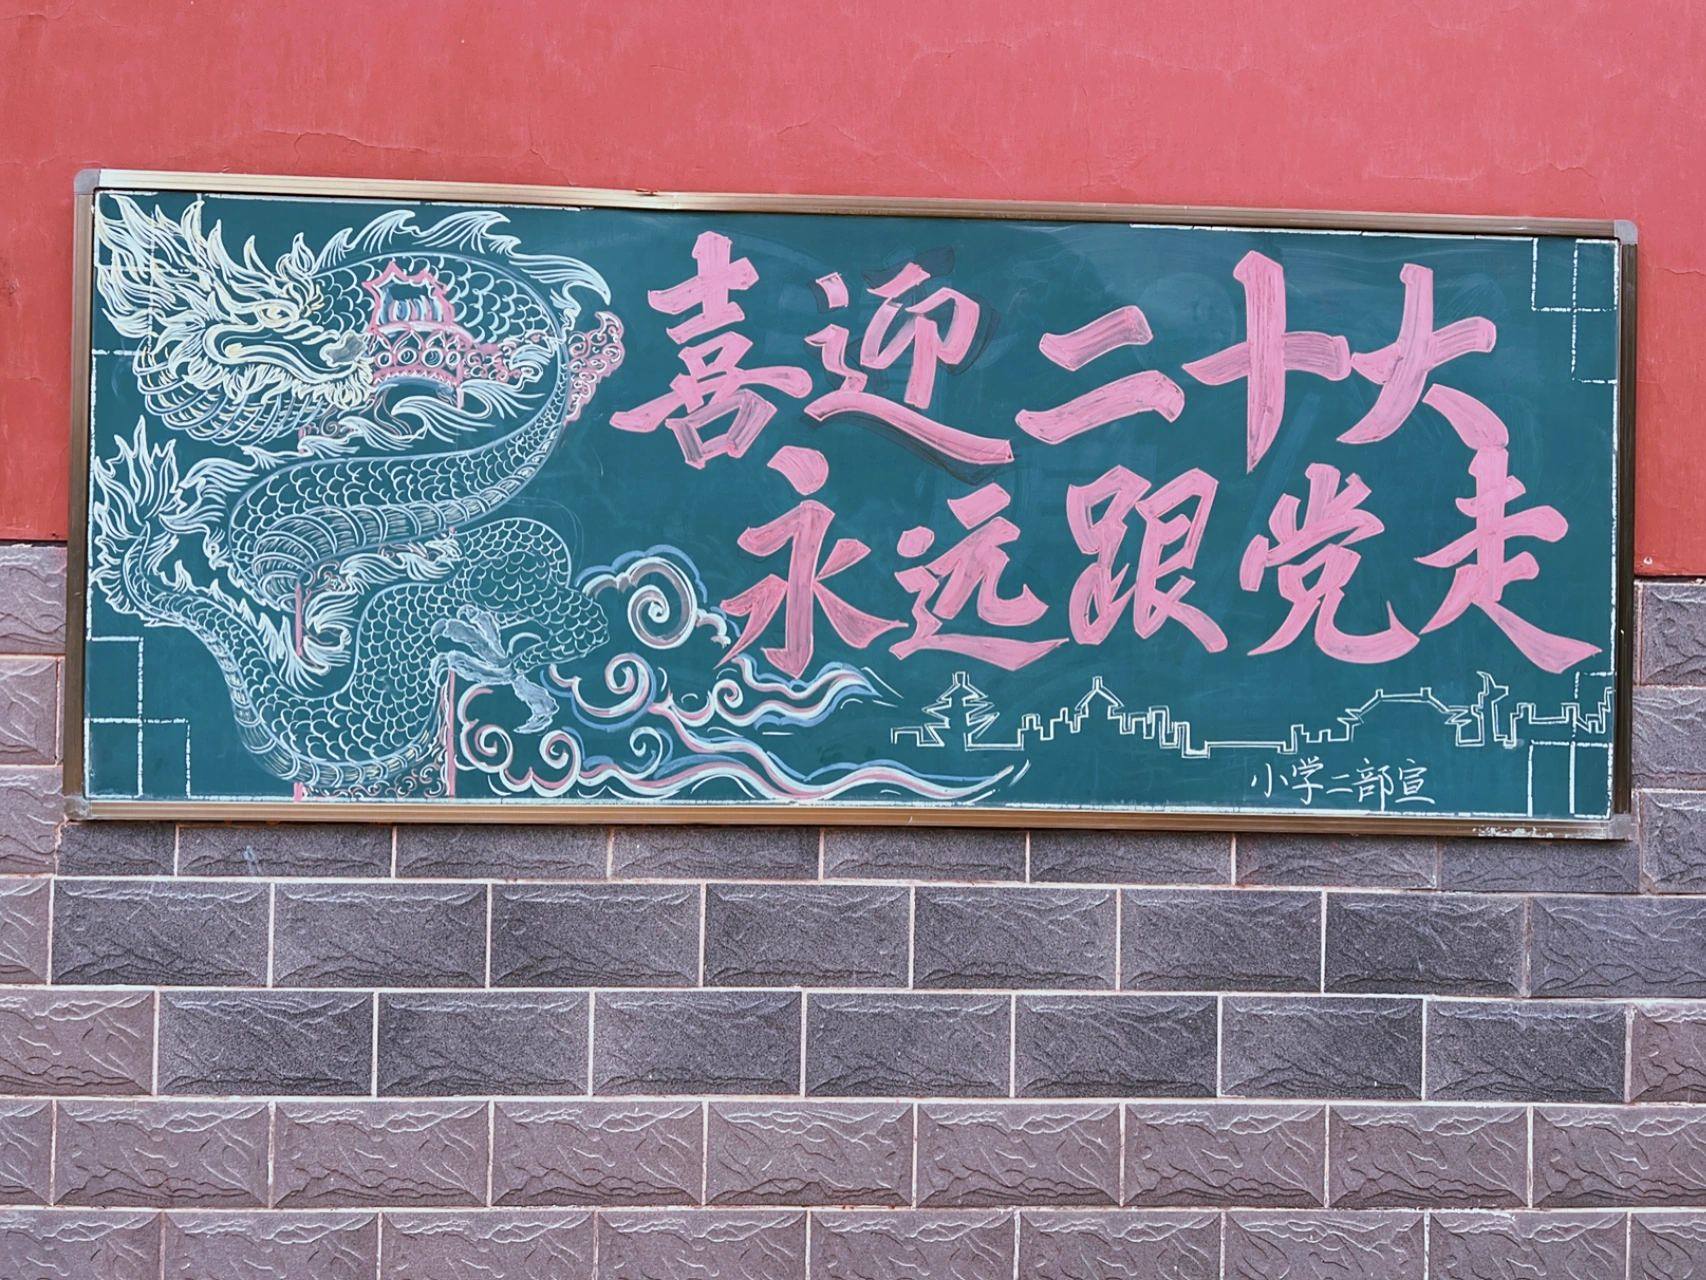 喜迎二十大
永远跟党走
小学二部宣